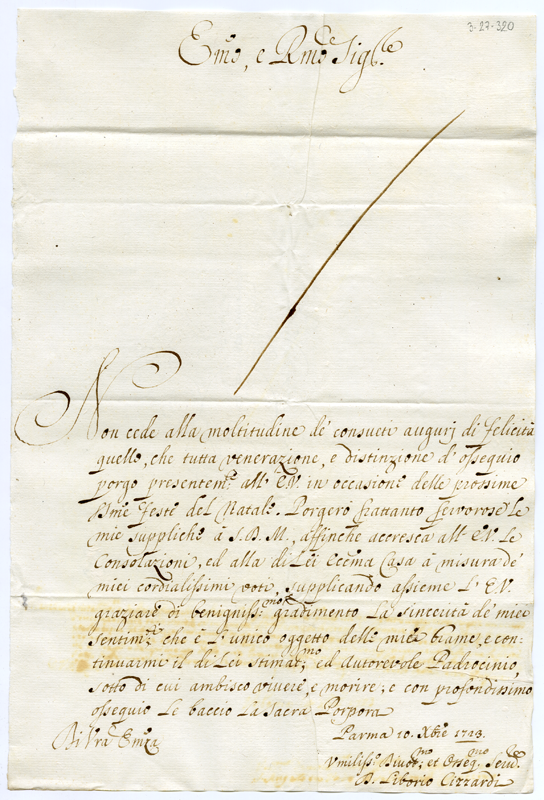 3-27-320
Emõ, e Rmõ Sig.re
Non cede alla moltitudine de' consueti augurj di felicità
quello, che tutta venerazione, e distinzione d'ossequio
porgo presentem.te all'E.V. in occasione delle prossime
Sšme Feste del Natale. Porgerò frattanto fervorose le
mie suppliche à S.D.M., affinche accresca all'E.V. le
Consolazioni, ed alla di Lei Eccma Casa à misura de
miei cordialissimi voti, supplicando assieme l'E.V.
graziare di benigniss.mo gradimento la sincerità de' miei
sentim.ti, che è l'unico oggetto delle mie brame, e con-
tinuarmi il di Lei stimat.mo, ed autorevole Padrocinio,
sotto di cui ambisco vivere, e morire; e con profondissimo
ossequio Le baccio la Sacra Porpora
Parma 10. Xbre 1723.
Di Vra Emza
Vmiliss.o Divot.mo, et Osseq.mo Serv.e
D. Liborio Cizzardi